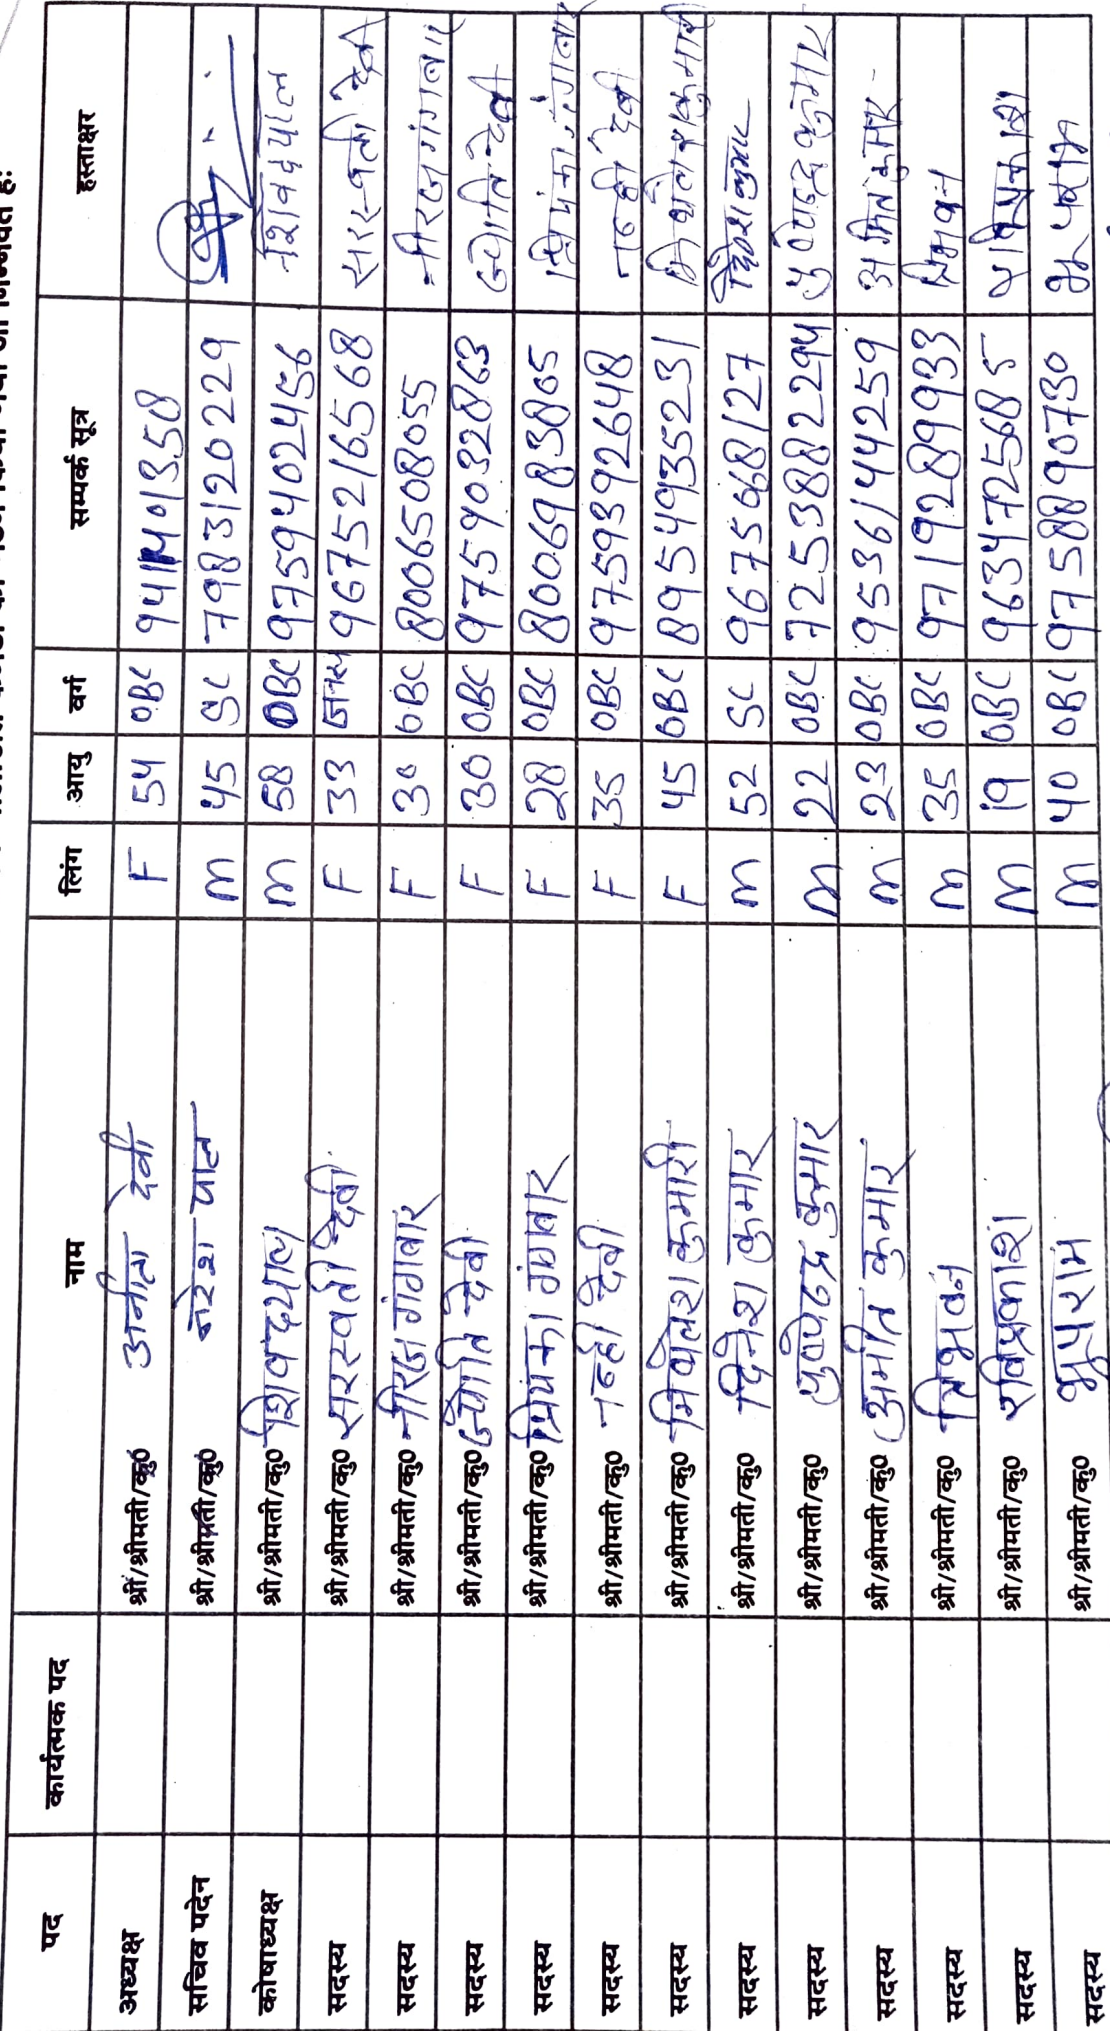 पद कार्यत्मक पद नाम लिंग आयु वर्ग सम्पर्क सूत्र हस्ताक्षर
अध्यक्ष श्री/श्रीमती/कु0 अनीता देवी F 54 OBC
सचिव पदेन श्री/श्रीमती/कु0 नरेश पाल M 45 SC 7983120229
कोषाध्यक्ष श्री/श्रीमती/कु0 शिवदयाल M 58 OBC 9759402456 शिवदयाल
सदस्य श्री/श्रीमती/कु0 सरस्वती देवी F 33 9675216568 सरस्वती देवी
सदस्य श्री/श्रीमती/कु0 नीरज गंगवार F 30 OBC 8006508055 नीरज गंगवार
सदस्य श्री/श्रीमती/कु0 ज्योति देवी F 30 OBC 9759032863 ज्योति देवी
सदस्य श्री/श्रीमती/कु0 प्रियंका गंगवार F 28 OBC 8006983805 प्रियंका गंगवार
सदस्य श्री/श्रीमती/कु0 नन्ही देवी F 35 OBC 9759392648 नन्ही देवी
सदस्य श्री/श्रीमती/कु0 मिथलेश कुमारी F 45 OBC 8954935231
सदस्य श्री/श्रीमती/कु0 दिनेश कुमार M 52 SC 9675668127 दिनेश कुमार
सदस्य श्री/श्रीमती/कु0 कुमार M 22 OBC 7253882294 कुमार
सदस्य श्री/श्रीमती/कु0 अमित कुमार M 23 OBC 9536144259 अमित कुमार
सदस्य श्री/श्रीमती/कु0 त्रिभुवन M 35 OBC 9719289933
सदस्य श्री/श्रीमती/कु0 रविप्रकाश M 19 OBC 9634725685
सदस्य श्री/श्रीमती/कु0 भूपराम M 40 OBC 9758890730 भूपराम